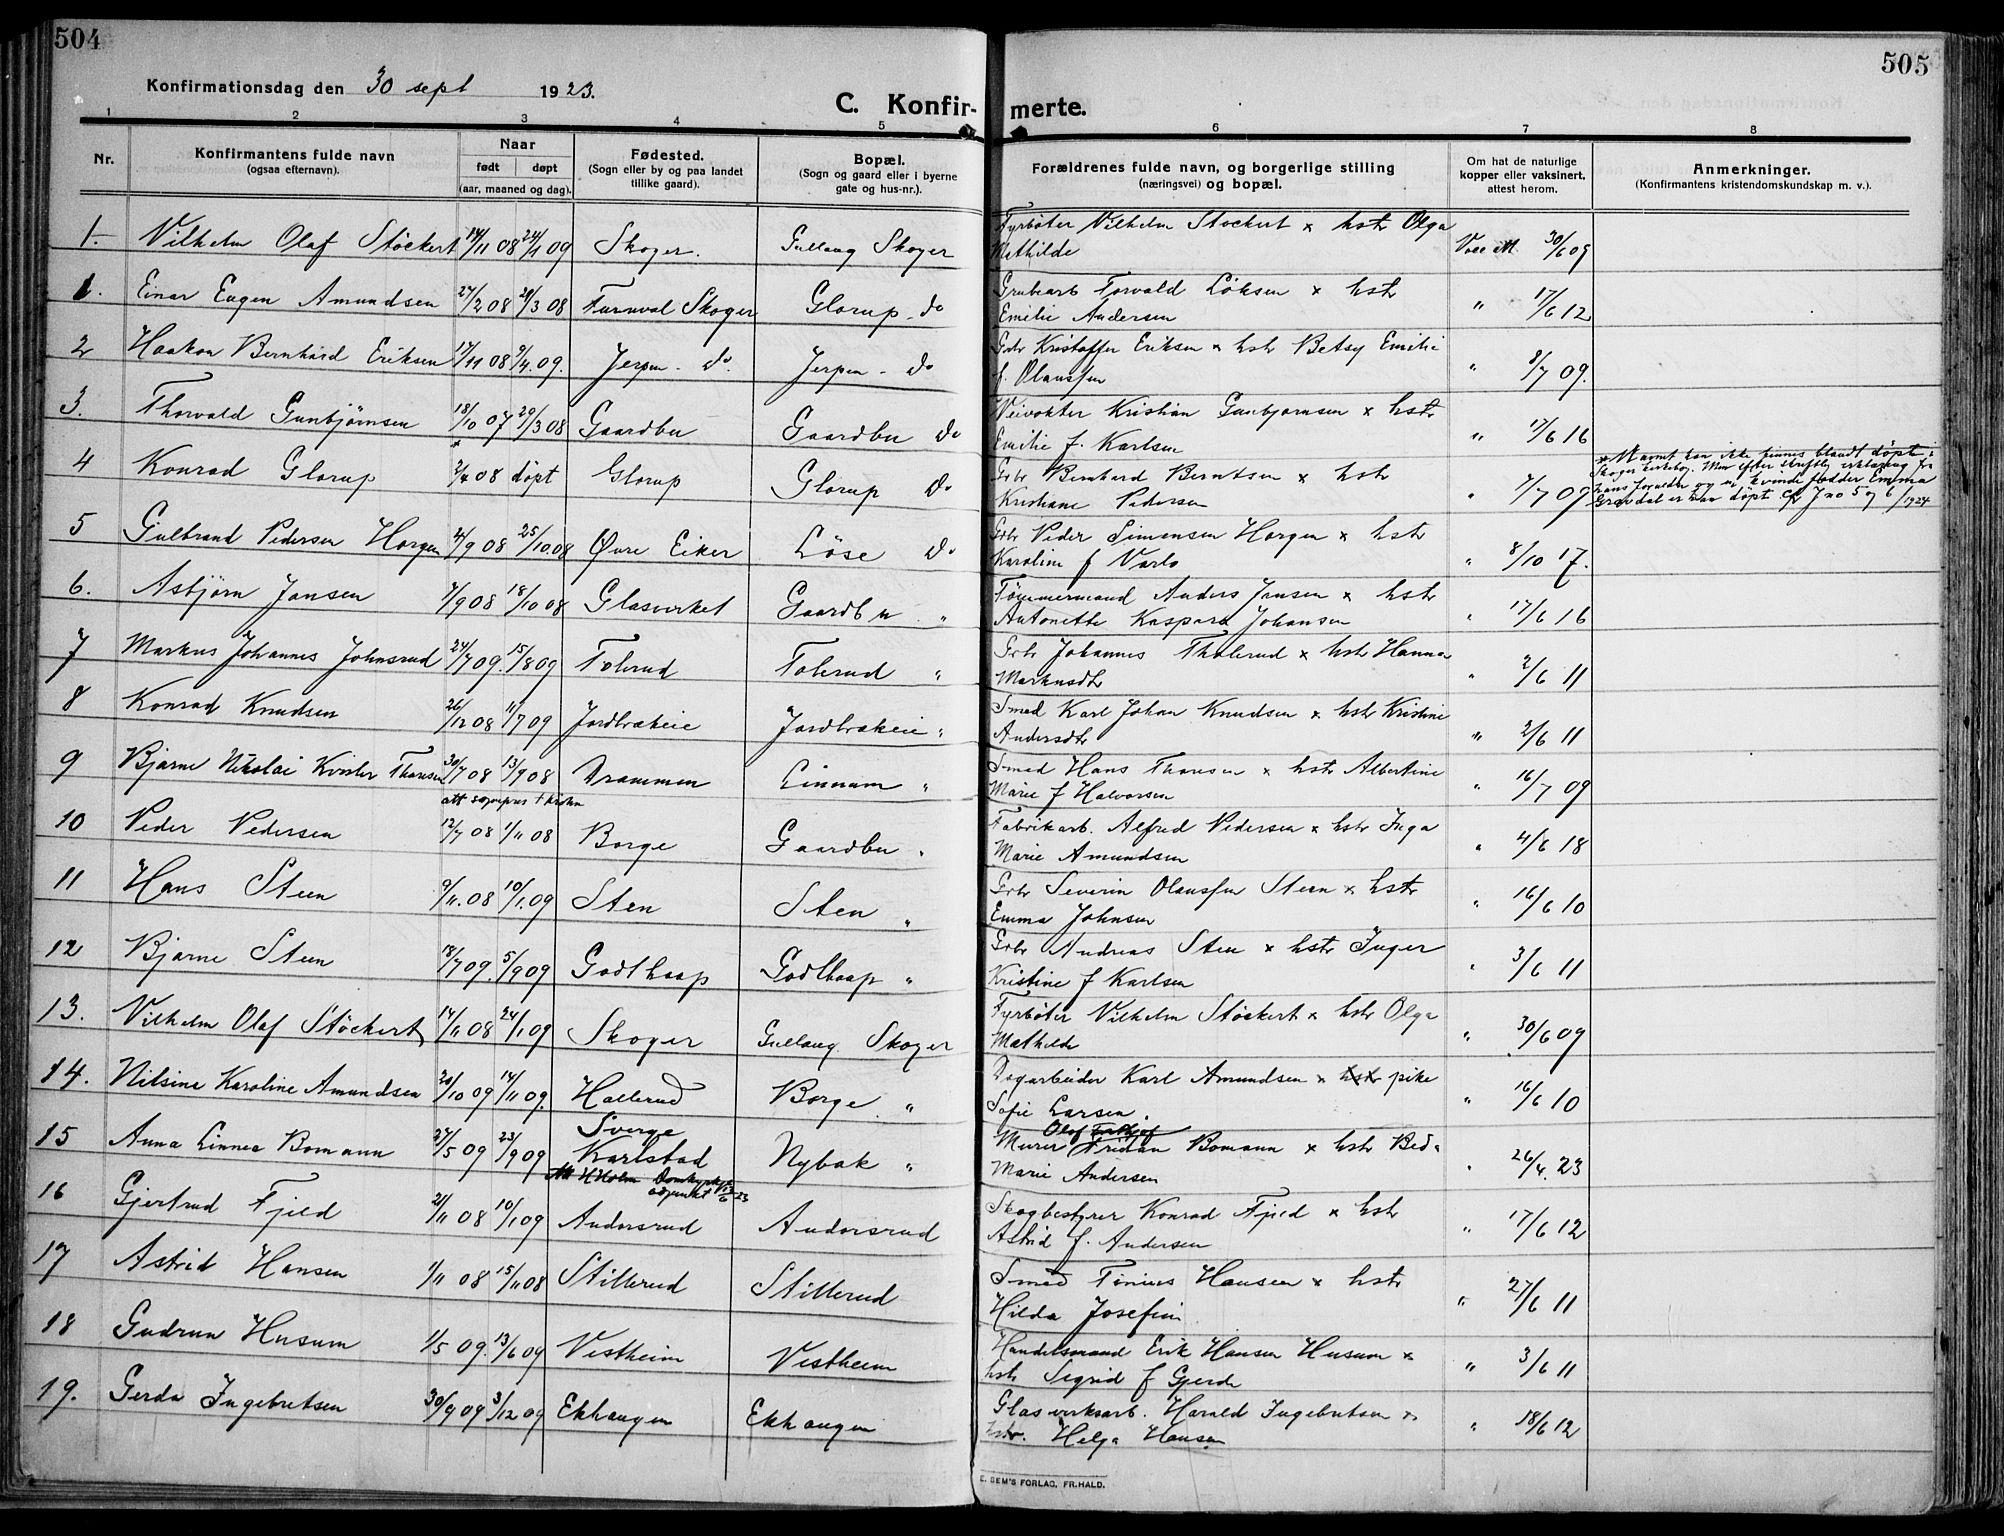 504
505
Konfirmationsdag den 30 sept 1923.
C. Konfir-merte.
1 2 3 4 5 6 7 8
Nr. Konfirmantens fulde navn (ogsaa efternavn). Naar født døpt (aar, maaned og dag). Fødested. (Sogn eller by og paa landet tillike gaard). Bopæl. (Sogn og gaard eller i byerne gate og hus-nr.). Forældrenes fulde navn, og borgerlige stilling (næringsvei) og bopæl. Om hat de naturlige kopper eller vaksinert, attest herom. Anmerkninger. (Konfirmantens kristendomskundskap m. v.).
1. Vilhelm Olaf Støckert 14/11 08 24/1 09 Skoger. Gullaug Skoger Fyrbøter Vilhelm Stockert x hstr Olga Mathilde Vacc att 30/6 09
1. Einar Eugen Amundsen 27/2 08 29/3 08 Furuvol Skoger Glorup do Grubearb Torvald Løksen x hstr Emilie Andersen " 17/6 12
2 Haakon Bernhard Eriksen 17/11 08 9/4 09. Jerpen do. Jerpen do Gbr Kristoffer Eriksen x hstr Betsy Emilie f. Olaussen " 8/7 09.
3. Thorvald Gunbjørnsen 18/10 07 29/3 08 Gaardbu Gaardbu do Veivokter Kristian Gunbjørnsen x hstr Emilie f. Karlsen " 17/6 16
4 Konrad Glorup 2/4 08 * døpt Glorup Glorup do Gbr Bernhard Berntsen x hstr Kristiane Pedersen " 7/7 09 * Navnet kan ikke finnes blandt døpte i Skoger kirkebog. Men efter skriftlig erklæring fra hans forælder og en kvinde fadder Emma Grøvdal er han døpt cfr J no 5 og 6/1924
5 Gulbrand Pedersen Horgen 4/9 08 25/10 08 Øvre Eiker Løse do Gbr Peder Simensen Horgen x hstr Karoline f Varlo " 8/10 17.
6. Asbjørn Jansen 7/9 08 18/10 08 Glasverket Gaardbu " Tømmermand Anders Jansen x hstr Antonette Kaspara Johansen " 17/6 16
7 Markus Johannes Johnsrud 24/7 09. 15/8 09 Tolerud Tolerud " Gbr Johannes Tholerud x hstr Hanna Markusdtr " 2/6 11
8 Konrad Knudsen 26/12 08 11/7 09 Jordbrækeie Jordbrækeie " Smed Karl Johan Knudsen x hstr Kristine Andersdtr " 2/6 11
9 Bjarne Nikolai Kvisler Thoresen 30/7 08 13/9 08 Drammen Linnum " Smed Hans Thoresen x hstr Albertine Marie f Halvorsen " 16/7 09
10 Peder Pedersen 12/7 08 1/11 08 Borge Gaardbu " Fabrikarb. Alfred Pedersen x hstr Inga Marie Amundsen " 4/6 18
11 Hans Steen 9/11 08 10/1 09 Sten Sten " Gbr Severin Olaussen Steen x hstr Emma Johnsen " 16/6 10
12 Bjarne Steen 18/7 09. 5/9 09 Godthaap Godthaap " Gbr Andreas Sten x hstr Inger Kristine f Karlsen " 3/6 11
13. Vilhelm Olaf Støckert 14/11 08 24/1 09 Skoger Gullaug Skoger Fyrbøter Vilhelm Støckert x hstr Olga Mathilde " 30/6 09
14. Nilsine Karoline Amundsen 20/10 09 14/11 09. Hallerud Borge " Dagarbeider Karl Amundsen x hstr pike Sofie Larsen. " 16/6 10
15 Anna Linnea Bomann 27/5 09 23/9 09 Sverge Karlstad Nybak " Murer Olof Bomann x hstr Beda Marie Andersen " 26/4. 23
16 Gjertrud Fjeld 21/11 08 10/1 09 Andorsrud Andorsrud Skogbestyrer Konrad Fjeld x hstr Astrid f. Andersen " 17/6 12
17 Astrid Hansen 1/11 08 15/11 08 Stillerud Stillerud Smed Tinius Hansen x hstr Hilda Josefine " 27/6 11
18 Gudrun Husum 1/5 09. 13/6 09 Vestheim Vestheim Handelsmand Erik Hansen Husum x hstr Sigrid f Gjerde " 3/6 11
19. Gerda Ingebretsen 30/9 09 3/12 09 Ekhaugen Ekhaugen Glasverksarb. Harald Ingebretsen x hstr. Helga Hansen " 18/6 12
E. SEM'S FORLAG, FR.HALD.